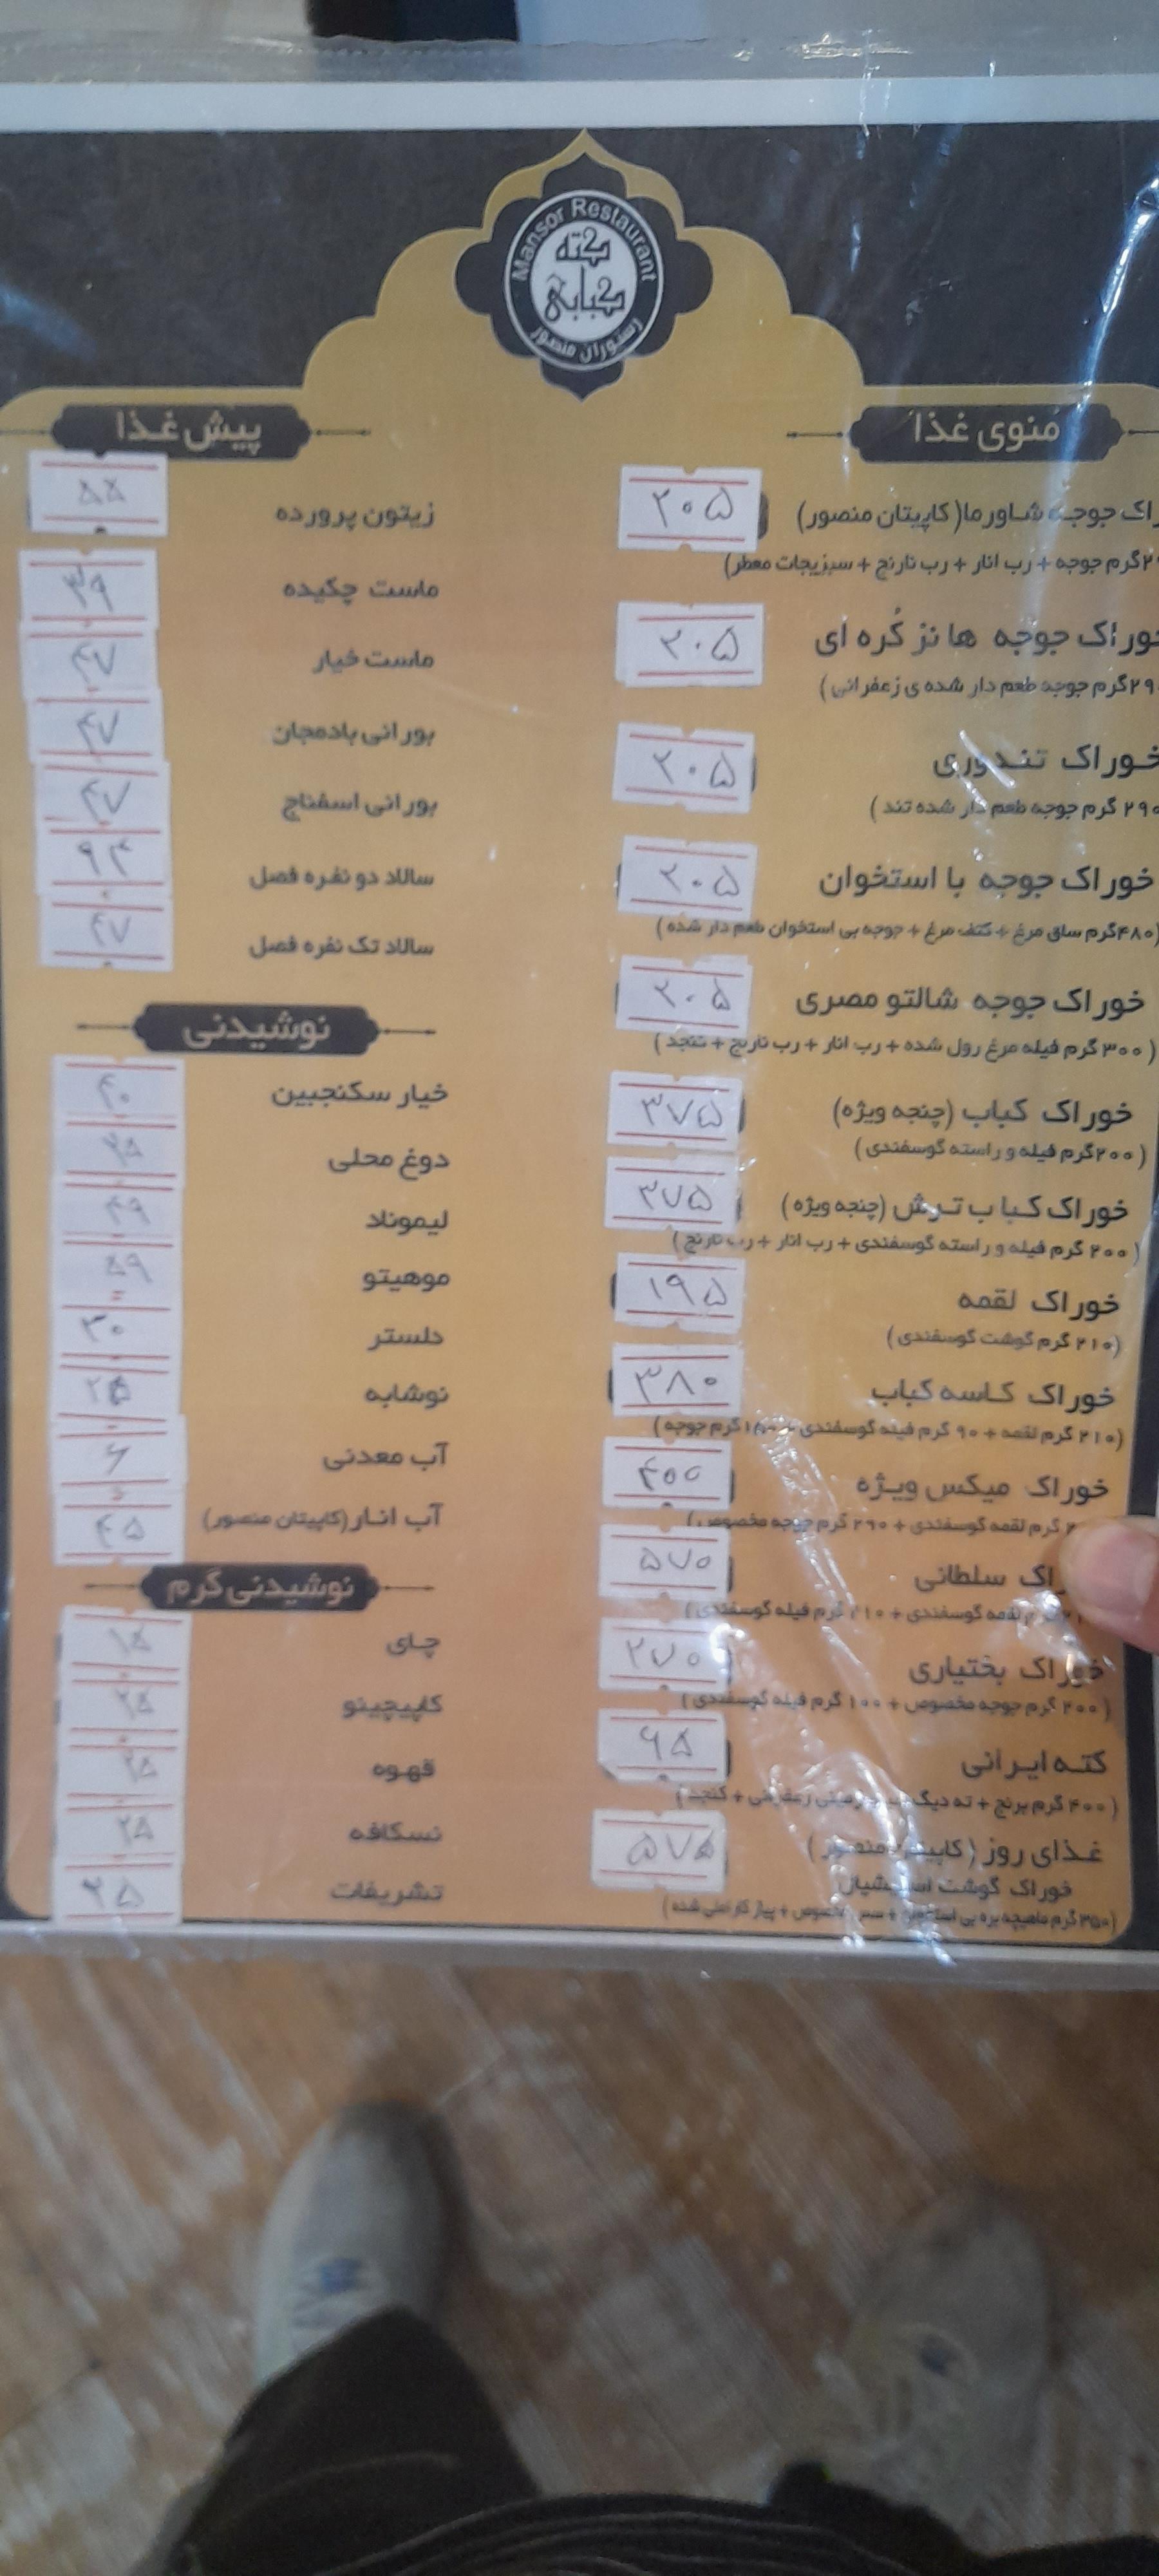 Mansor Restaurant
کته
کبابی
رستوران منصور
مَنوی غذا
راک جوجه شاورما(کاپیتان منصور) ۲۰۵
گرم جوجه + رب انار + رب نارنج + سبزیجات معطر)
خوراک جوجه هانز کُره ای ۲۰۵
۲۹گرم جوجه طعم دار شده ی زعفرانی)
خوراک تندوری ۲۰۵
۲۹۰ گرم جوجه طعم دار شده تند)
خوراک جوجه با استخوان ۲۰۵
۴۸۰گرم ساق مرغ + کتف مرغ + جوجه بی استخوان طعم دار شده)
خوراک جوجه شالتو مصری ۲۰۵
(۳۰۰ گرم فیله مرغ رول شده + رب انار + رب نارنج + کنجد)
خوراک کباب (چنجه ویژه) ۳۷۵
(۲۰۰گرم فیله و راسته گوسفندی)
خوراک کباب ترش (چنجه ویژه) ۳۷۵
(۲۰۰ گرم فیله و راسته گوسفندی + رب انار + رب نارنج)
خوراک لقمه ۱۹۵
(۲۱۰ گرم گوشت گوسفندی)
خوراک کاسه کباب ۳۸۰
(۲۱۰ گرم لقمه + ۹۰ گرم فیله گوسفندی + گرم جوجه)
خوراک میکس ویژه ۴۰۰
گرم لقمه گوسفندی + ۲۹۰ گرم جوجه مخصوص)
راک سلطانی ۵۷۰
لقمه گوسفندی + ۲۱۰ گرم فیله گوسفندی)
خوراک بختیاری ۲۷۰
(۲۰۰ گرم جوجه مخصوص + ۱۰۰ گرم فیله گوسفندی)
کته ایرانی ۶۵
(۴۰۰ گرم برنج + ته دیگ زعفرانی + کنجد)
غذای روز (کاپیتان منصور) ۵۷۵
خوراک گوشت
(۳۵۰ گرم ماهیچه بره بی + مخصوص + پیاز کاراملی شده)
پیش غذا
زیتون پرورده ۵۵
ماست چکیده ۳۹
ماست خیار ۴۷
بورانی بادمجان ۴۷
بورانی اسفناج ۴۷
سالاد دو نفره فصل ۹۴
سالاد تک نفره فصل ۴۷
نوشیدنی
خیار سکنجبین ۴۰
دوغ محلی ۲۵
لیموناد ۴۹
موهیتو ۵۹
دلستر ۳۰
نوشابه ۲۵
آب معدنی ۶
آب انار(کاپیتان منصور) ۴۵
نوشیدنی گرم
چای ۱۵
کاپیچینو ۲۵
قهوه ۲۵
نسکافه ۲۵
تشریفات ۲۵